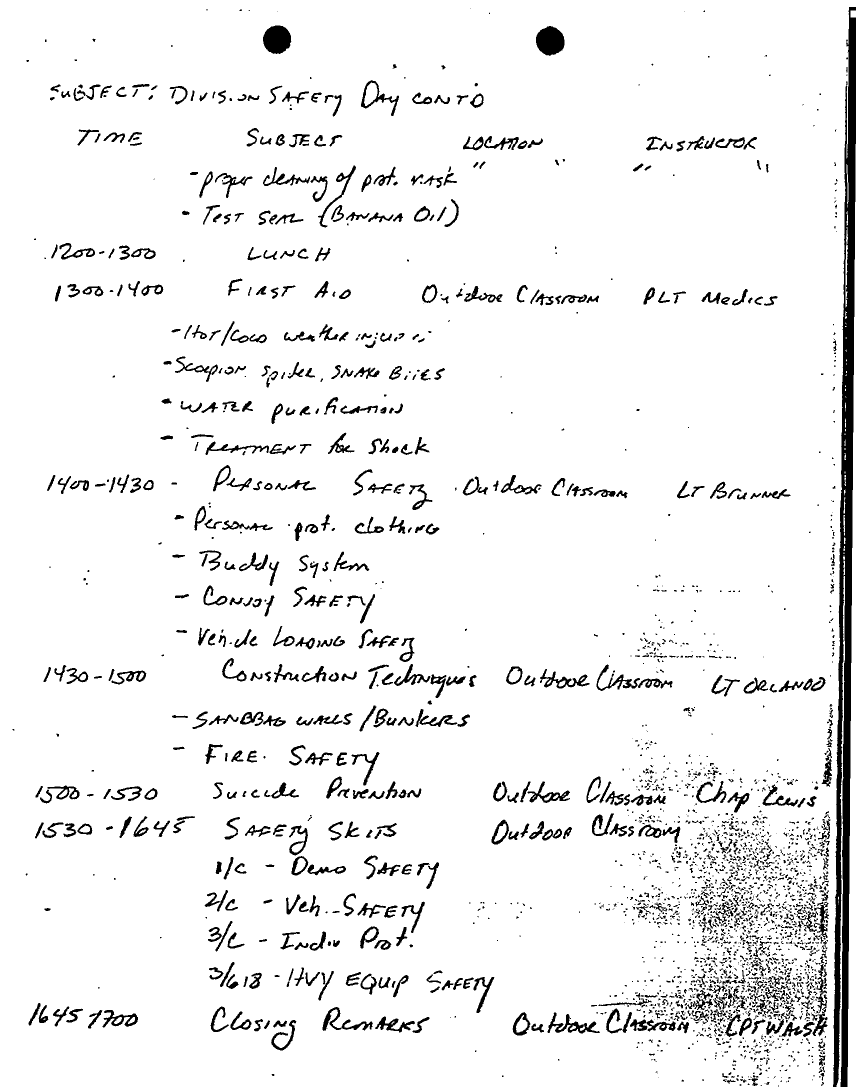 SUBJECT: DIVISION SAFETY DAY CONT'D
TIME SUBJECT LOCATION INSTRUCTOR
- proper cleaning of prot. mask " " " "
- TEST SEAL (BANANA Oil)
1200-1300 LUNCH
1300-1400 FIRST AID Outdoor Classroom PLT Medics
- Hot/Cold weather injuries
- Scorpion, Spider, SNAKE BITES
- WATER purification
- TREATMENT for Shock
1400-1430 - PERSONAL SAFETY Outdoor Classroom LT BRUNNER
- Personal prot. clothing
- Buddy System
- CONVOY SAFETY
- Vehicle LOADING SAFETY
1430-1500 Construction Techniques Outdoor Classroom LT ORLANDO
- SANDBAG WALLS / BUNKERS
- FIRE SAFETY
1500-1530 Suicide Prevention Outdoor Classroom Chap Lewis
1530-1645 SAFETY SKITS Outdoor Classroom
1/C - DEMO SAFETY
2/C - Veh. SAFETY
3/C - Indiv Prot.
3/618 - HVY EQUIP SAFETY
1645-1700 CLOSING REMARKS Outdoor Classroom CPT WALSH